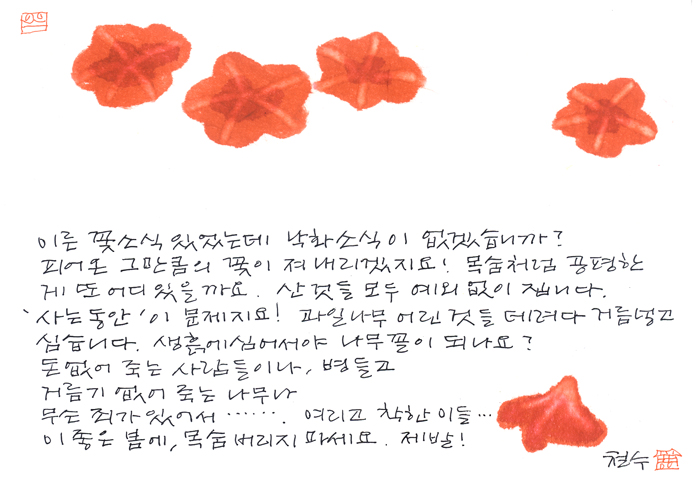 이른 꽃소식 있었는데 낙화소식이 없겠습니까?
피어온 그만큼의 꽃이 져내리겠지요! 목숨처럼 공평한
게 또 어디 있을까요. 산 것들 모두 예외 없이 집니다.
'사는동안'이 문제지요! 과일나무 어린 것들 데려다 거름넣고
심습니다. 생흙에 심어서야 나무꼴이 되나요?
돈없어 죽는 사람들이나, 병들고
거름기 없어 죽는 나무나
무슨 죄가 있어서 ……. 여리고 착한 이들…
이 좋은 봄에, 목숨 버리지 마세요. 제발!
철수